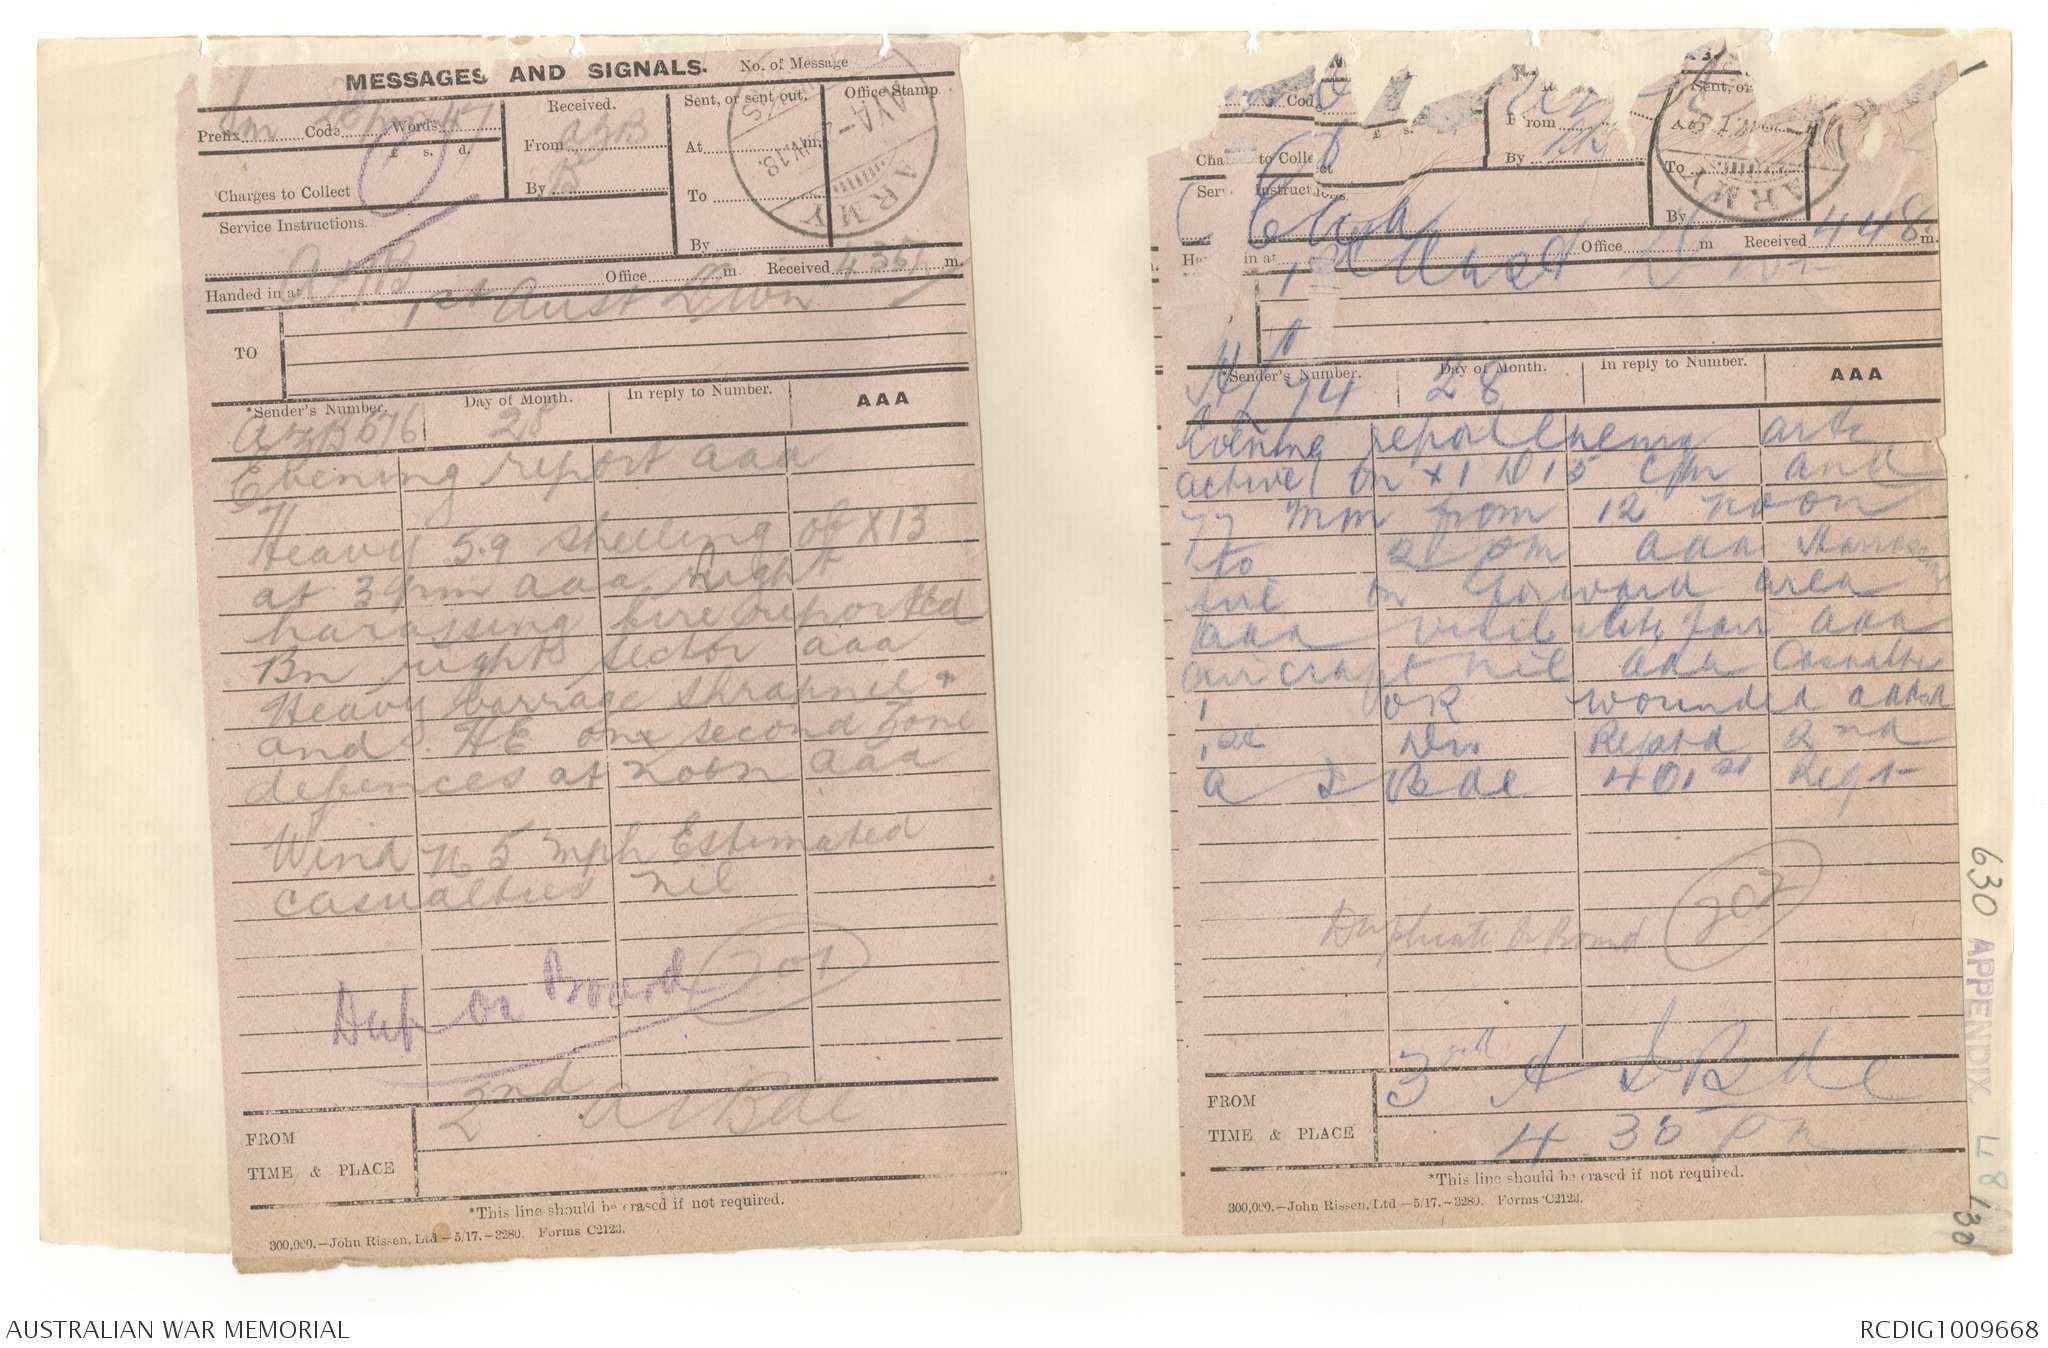 MESSAGES AND SIGNALS. No. of Message
Prefix Sm Code Words 47
£ s. d.
Charges to Collect
Service Instructions.
AZB
Received.
From AZB
By
Sent, or sent out.
At m.
To
By
Office Stamp.
ARMY
Handed in at Office m. Received 4.35p m.
TO 1st Aust Divn
*Sender's Number. Day of Month. In reply to Number. AAA
AZB 676 28
Evening report aaa
Heavy 5.9 shelling of X13
at 3 pm aaa Night
harassing fire reported
Bn right sector aaa
Heavy barrage shrapnel
and HE on second zone
defences at noon aaa
Wind N 5 mph Estimated
casualties nil
Dup on Board
201
FROM 2nd A I Bde
TIME & PLACE
*This line should be erased if not required.
300,000.—John Rissen, Ltd—5/17.—3280. Forms C2123.
Code
£ s.
Charges to Collect
Service Instructions.
From
By
Sent, or
At
To
By
ARMY
Handed in at Office m Received 448 m.
1st Aust Divn
Sender's Number. Day of Month. In reply to Number. AAA
74 28
Evening report enemy arty
active on X1 D 15 cm and
77 mm from 12 noon
to 2 pm aaa
fire on forward area
aaa visibility fair aaa
aircraft nil aaa Casualties
1 OR wounded aaa
1st Div Reptd 2nd
A I Bde 401st Regt
Duplicate on Board
202
FROM 3rd A I Bde
TIME & PLACE 4.30 pm
*This line should be erased if not required.
300,000.—John Rissen, Ltd—5/17.—3280. Forms C2123.
630 APPENDIX. 48/30
AUSTRALIAN WAR MEMORIAL
RCDIG1009668